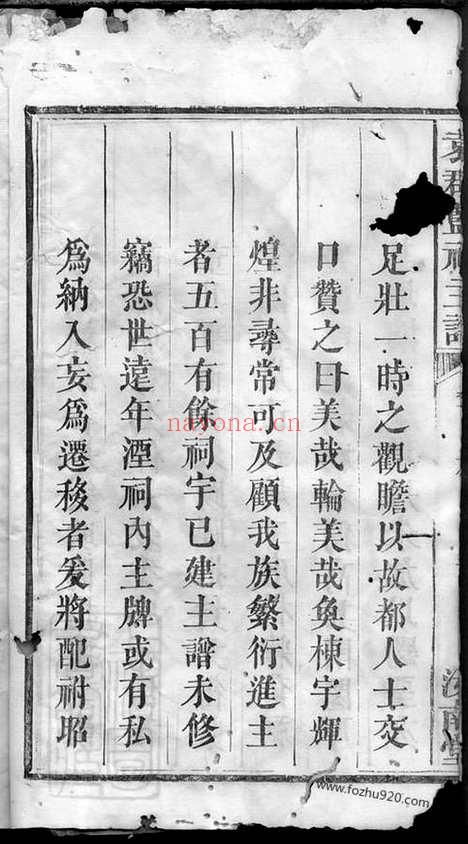 足壯一時之觀瞻以故都人士交
口贊之曰美哉輪美哉奐棟宇輝
煌非尋常可及顧我族繁衍進主
者五百有餘祠宇已建主譜未修
竊恐世遠年湮祠內主牌或有私
爲納入妄爲遷移者爰將配祔昭
nayona.cn
www.fozhu920.com